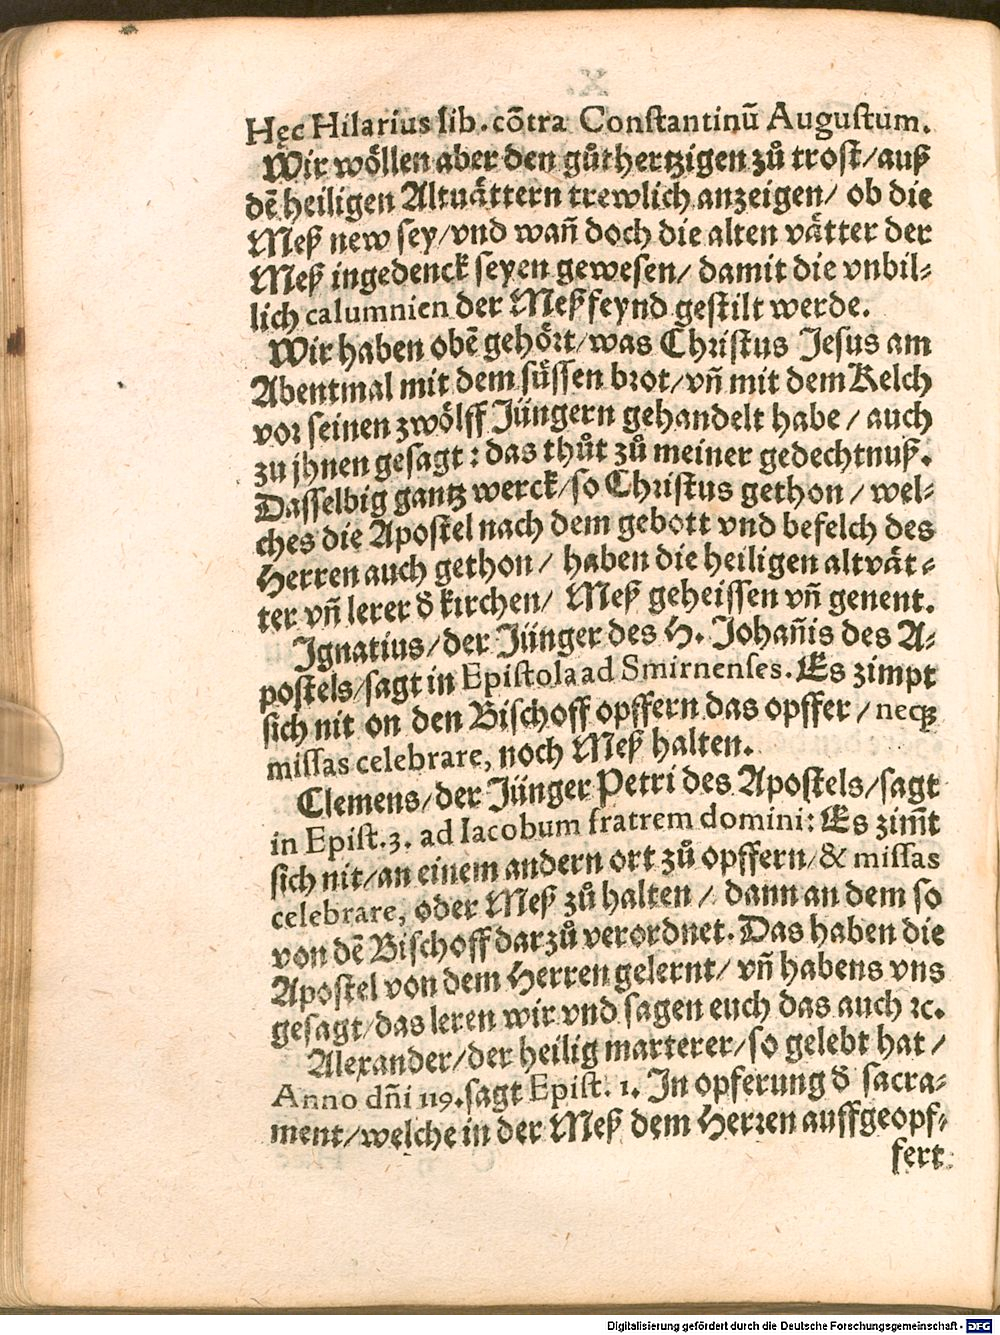 Hęc Hilarius lib. cõtra Constantinũ Augustum.
Wir wöllen aber den gůthertzigen zů trost/auß
dẽ heiligen Altuättern trewlich anzeigen/ ob die
Meß new sey/vnd wañ doch die alten vätter der
Meß ingedenck seyen gewesen/ damit die vnbil⸗
lich calumnien der Meßfeynd gestilt werde.
Wir haben obẽ gehört/was Christus Jesus am
Abentmal mit dem süssen brot/vñ mit dem Kelch
vor seinen zwölff Jüngern gehandelt habe/ auch
zu jhnen gesagt: das thůt zů meiner gedechtnuß.
Dasselbig gantz werck/so Christus gethon/ wel⸗
ches die Apostel nach dem gebott vnd befelch des
Herren auch gethon/ haben die heiligen altvät⸗
ter vñ lerer d̕ kirchen/ Meß geheissen vñ genent.
Ignatius/der Jünger des H. Johañis des A⸗
postels/sagt in Epistola ad Smirnenses. Es zimpt
sich nit on den Bischoff opffern das opffer/ neqꝫ
missas celebrare, noch Meß halten.
Clemens/der Jünger Petri des Apostels/sagt
in Epist.3. ad Iacobum fratrem domini: Es zim̃t
sich nit/an einem andern ort zů opffern/& missas
celebrare, oder Meß zů halten/ dann an dem so
von dẽ Bischoff darzů verordnet. Das haben die
Apostel von dem Herren gelernt/ vñ habens vns
gesagt/das leren wir vnd sagen euch das auch ꝛc.
Alexander/der heilig marterer/so gelebt hat/
Anno dñi 119. sagt Epist. 1. In opferung d̕ sacra⸗
ment/welche in der Meß dem Herren auffgeopf⸗
fert
Digitalisierung gefördert durch die Deutsche Forschungsgemeinschaft - DFG